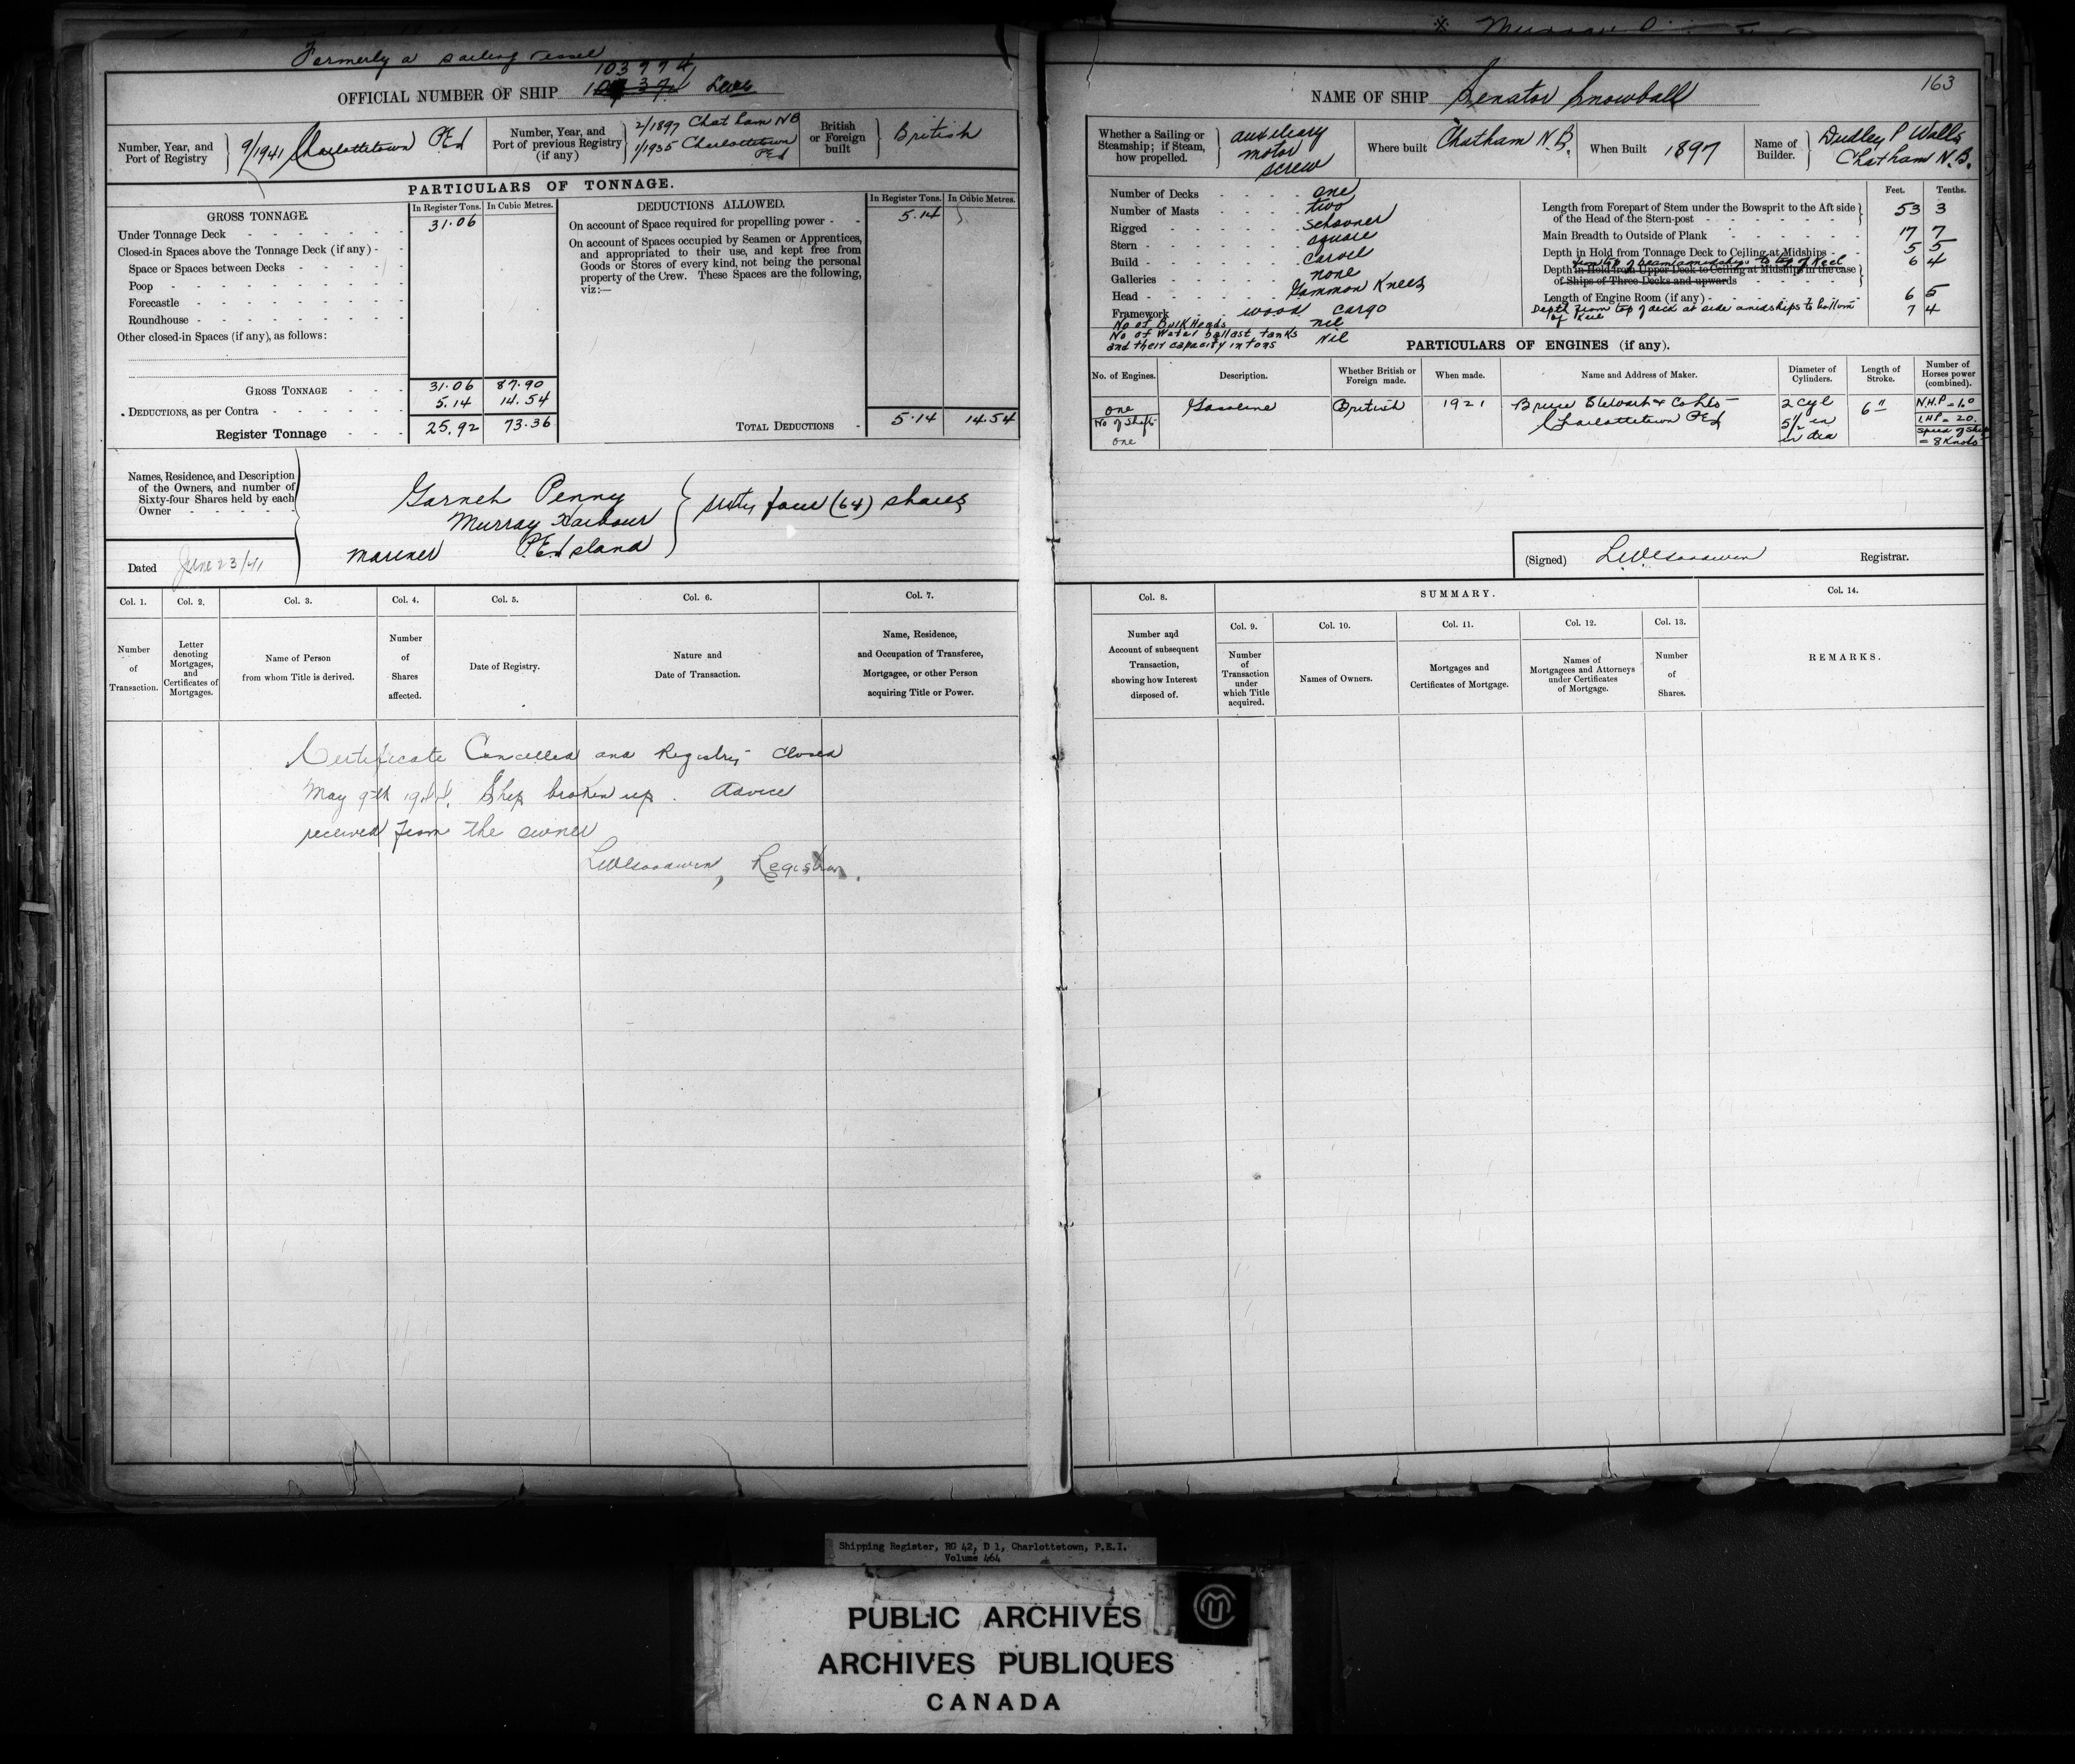 Formerly a sailing vessel
103994
OFFICIAL NUMBER OF SHIP
Number, Year, and Port of Registry
9/1941 Charlottetown PEI
Number, Year, and Port of previous Registry (if any)
2/1897 Chatham NB
1/1935 Charlottetown PEI
British or Foreign built
British
PARTICULARS OF TONNAGE.
GROSS TONNAGE.
In Register Tons. In Cubic Metres.
Under Tonnage Deck 31.06
Closed-in Spaces above the Tonnage Deck (if any)
Space or Spaces between Decks
Poop
Forecastle
Roundhouse
Other closed-in Spaces (if any), as follows:
GROSS TONNAGE 31.06 87.90
DEDUCTIONS, as per Contra 5.14 14.54
Register Tonnage 25.92 73.36
DEDUCTIONS ALLOWED.
In Register Tons. In Cubic Metres.
On account of Space required for propelling power 5.14
On account of Spaces occupied by Seamen or Apprentices,
and appropriated to their use, and kept free from
Goods or Stores of every kind, not being the personal
property of the Crew. These Spaces are the following,
viz:—
TOTAL DEDUCTIONS 5.14 14.54
Names, Residence, and Description
of the Owners, and number of
Sixty-four Shares held by each
Owner
Penny
Murray Harbour
mariner P.E. Island
sixty four (64) shares
Dated June 23/41
Col. 1. Col. 2. Col. 3. Col. 4. Col. 5. Col. 6. Col. 7.
Number of Transaction.
Letter denoting Mortgages, and Certificates of Mortgages.
Name of Person from whom Title is derived.
Number of Shares affected.
Date of Registry.
Nature and Date of Transaction.
Name, Residence, and Occupation of Transferee, Mortgagee, or other Person acquiring Title or Power.
Certificate Cancelled and Registry closed
May 9th 1944. Ship broken up. Advice
received from the owner
Registrar.
163
NAME OF SHIP Senator Snowball
Whether a Sailing or Steamship; if Steam, how propelled.
auxiliary
motor
screw
Where built Chatham N.B.
When Built 1897
Name of Builder.
Dudley P Walls
Chatham N.B.
Number of Decks one
Number of Masts two
Rigged schooner
Stern square
Build carvel
Galleries none
Head Gammon Knees
Framework wood cargo
No of BulkHeads nil
No of Water ballast tanks
and their capacity in tons Nil
Feet. Tenths.
Length from Forepart of Stem under the Bowsprit to the Aft side
of the Head of the Stern-post 53 3
Main Breadth to Outside of Plank 17 7
Depth in Hold from Tonnage Deck to Ceiling at Midships 5 5
from top of beam amidships to top of Keel
Depth in Hold from Upper Deck to Ceiling at Midships in the case
of Ships of Three Decks and upwards 6 4
Length of Engine Room (if any) 6 5
Depth from top of deck at side amidships to bottom
of Keel 7 4
PARTICULARS OF ENGINES (if any).
No. of Engines. Description. Whether British or Foreign made. When made. Name and Address of Maker. Diameter of Cylinders. Length of Stroke. Number of Horses power (combined).
one Gasoline British 1921 Bruce Stewart & Co Ltd 2 cyl 6" N.H.P = 1.0
No of Shafts Charlottetown PEI 5 1/2 in I.H.P = 20
one in dia speed of ship
= 8 Knots
(Signed) Registrar.
Col. 8. SUMMARY. Col. 14.
Col. 9. Col. 10. Col. 11. Col. 12. Col. 13.
Number and Account of subsequent Transaction, showing how Interest disposed of.
Number of Transaction under which Title acquired.
Names of Owners.
Mortgages and Certificates of Mortgage.
Names of Mortgagees and Attorneys under Certificates of Mortgage.
Number of Shares.
REMARKS.
Shipping Register, RG 42, D 1, Charlottetown, P.E.I.
Volume 464
PUBLIC ARCHIVES
ARCHIVES PUBLIQUES
CANADA